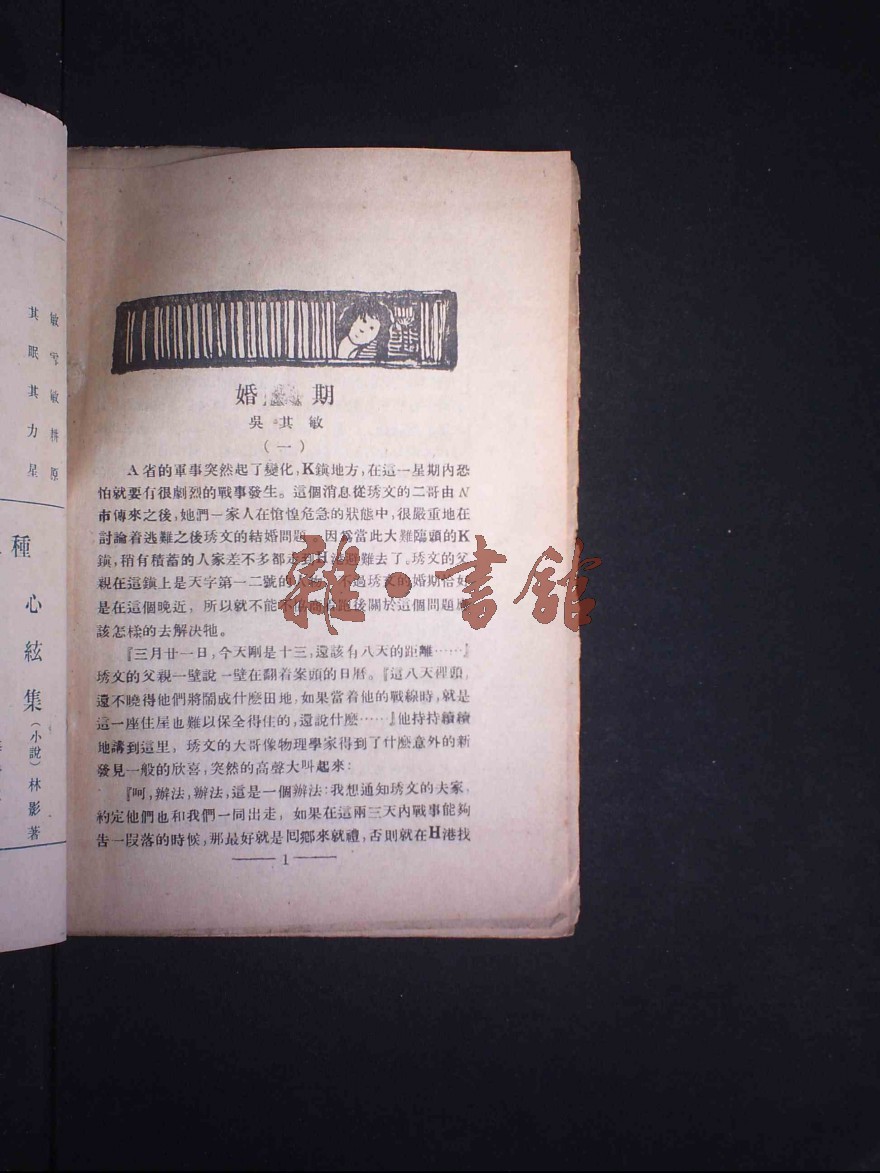 婚期
吳其敏
（一）
A省的軍事突然起了變化，K鎮地方，在這一星期內恐
怕就要有很劇烈的戰事發生。這個消息從琇文的二哥由N
市傳來之後，她們一家人在愴惶危急的狀態中，很嚴重地在
討論着逃難之後琇文的結婚問題，因爲當此大難臨頭的K
鎮，稍有積蓄的人家差不多都逃到H港避難去了。琇文的父
親在這鎮上是天字第一二號的人物，不過琇文的婚期恰好
是在這個晚近，所以就不能不關於這個問題應
該怎樣的去解决牠。
『三月廿一日，今天剛是十三，還該有八天的距離……』
琇文的父親一壁說一壁在翻着案頭的日曆。『這八天裡頭，
還不曉得他們將鬧成什麼田地，如果當着他的戰線時，就是
這一座住屋也難以保全得住的，還說什麼……』他持持續續
地講到這里，琇文的大哥像物理學家得到了什麼意外的新
發見一般的欣喜，突然的高聲大叫起來：
『呵，辦法，辦法，這是一個辦法：我想通知琇文的夫家，
約定他們也和我們一同出走，如果在這兩三天內戰事能夠
告一段落的時候，那最好就是囘鄉來就禮，否則就在H港找
1
敏雫敏耕原
其眠其力星
種
心絃集（小說）林影著
雜·書館